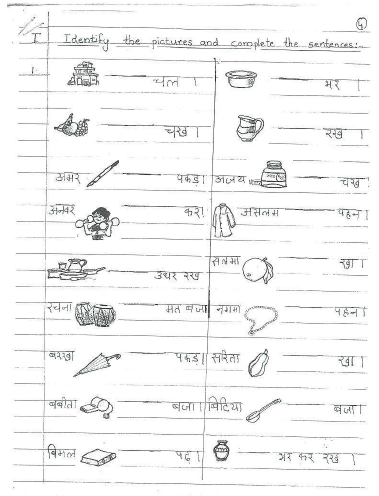 5
I Identify the pictures and complete the sentences:-
1. चल । भर ।
चख । रख ।
अमर पकड़ । अजय चख ।
अनवर कर । असलम पहन ।
उधर रख सलमा खा ।
रचना मत बजा नगमा पहन ।
बरखा पकड़ । सरिता खा ।
बबीता बजा । बिटिया बजा ।
बिमल पढ़ । भर कर रख ।